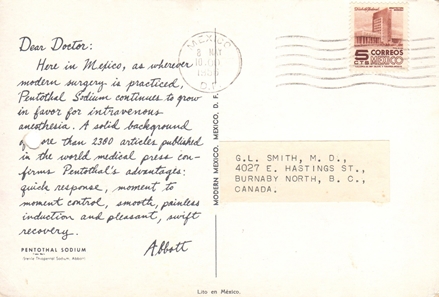 Dear Doctor:
Here in Mexico, as wherever
modern surgery is practiced,
Pentothal Sodium continues to grow
in favor for intravenous
anesthesia. A solid background
of more than 2300 articles published
in the world medical press con-
firms Pentothal's advantages:
quick response, moment to
moment control, smooth, painless
induction and pleasant, swift
recovery.
Abbott
PENTOTHAL SODIUM
Sterile Thiopental Sodium, Abbott
MODERN MEXICO, MEXICO, D. F.
MEXICO
D.F.
5 CTS
CORREOS
MEXICO
G.L. SMITH, M. D.,
4027 E. HASTINGS ST.,
BURNABY NORTH, B. C.,
CANADA.
Lito en México.